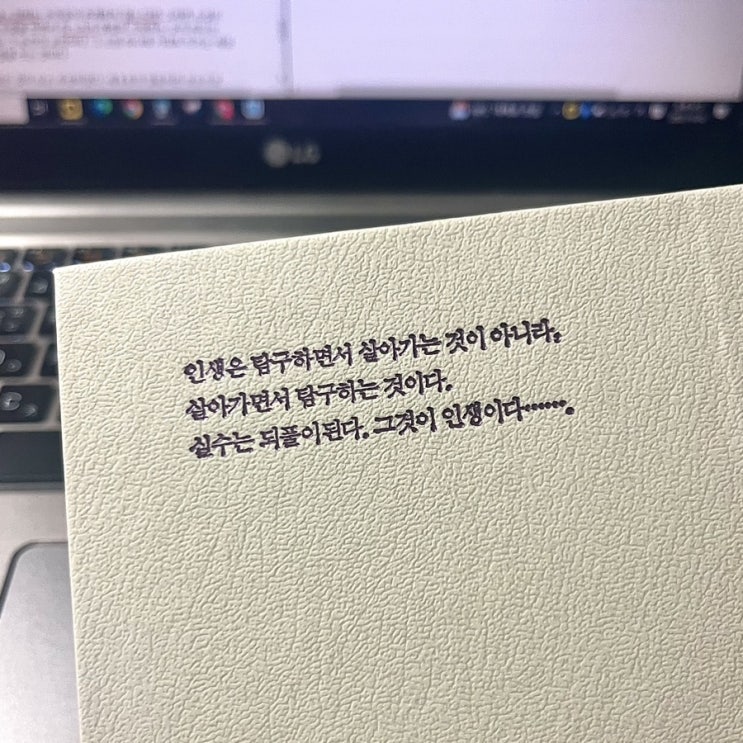 LG
인생은 탐구하면서 살아가는 것이 아니라,
살아가면서 탐구하는 것이다.
실수는 되풀이된다. 그것이 인생이다…….